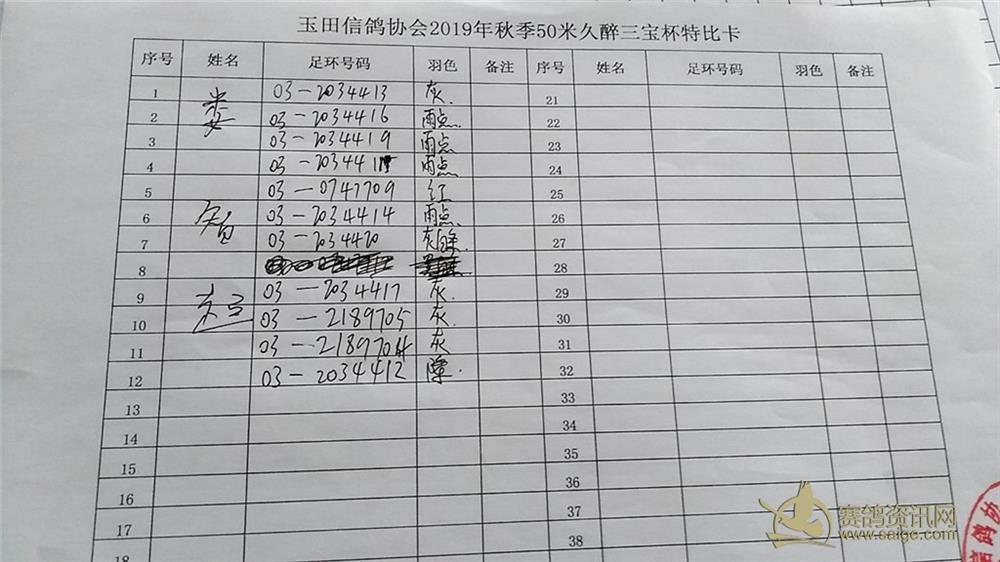 玉田信鸽协会2019年秋季50米久醉三宝杯特比卡
序号 姓名 足环号码 羽色 备注 序号 姓名 足环号码 羽色 备注
1 娄 03-2034413 灰 21
2 03-2034416 雨点 22
3 03-2034419 雨点 23
4 03-203441 雨点 24
5 03-0747709 红 25
6 03-2034414 雨点 26
7 03-2034420 灰 27
8 28
9 03-2034417 灰 29
10 03-2189705 灰 30
11 03-2189704 灰 31
12 03-2034412 32
13 33
14 34
15 35
16 36
17 37
18 38
赛鸽资讯网
www.saigc.com
信鸽协